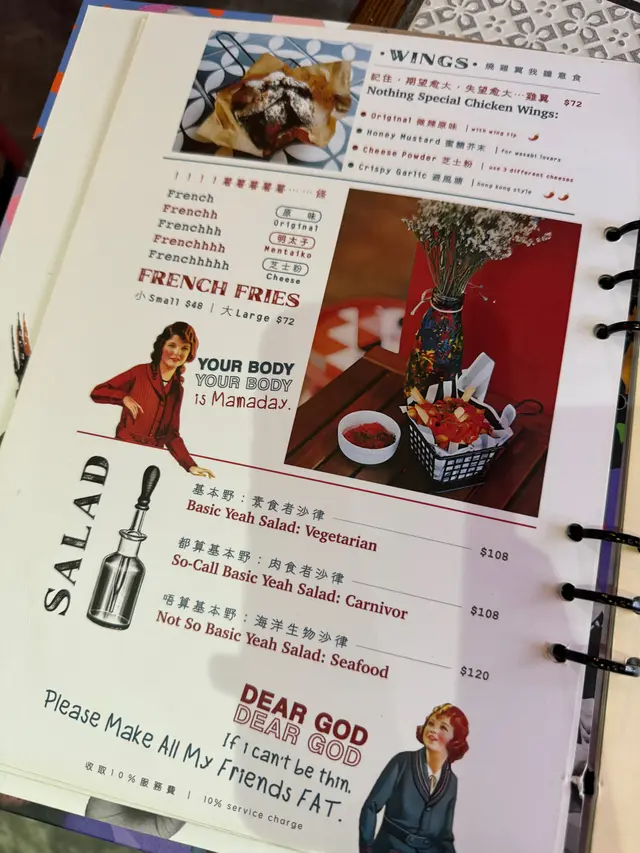 ·WINGS· 燒雞翼我鍾意食
記住，期望愈大，失望愈大…雞翼 $72
Nothing Special Chicken Wings:
Original 微辣原味 | with wing tip
Honey Mustard 蜜糖芥末 | for wasabi lovers
Cheese Powder 芝士粉 | use 3 different cheeses
Crispy Garlic 避風塘 | hong kong style
！！！！薯薯薯薯薯……條
French
Frenchh
Frenchhh
Frenchhhh
Frenchhhhh
原味
Original
明太子
Mentaiko
芝士粉
Cheese
FRENCH FRIES
小 Small $48 | 大 Large $72
YOUR BODY
YOUR BODY
is Mamaday.
SALAD
基本野：素食者沙律
Basic Yeah Salad: Vegetarian $108
都算基本野：肉食者沙律
So-Call Basic Yeah Salad: Carnivor $108
唔算基本野：海洋生物沙律
Not So Basic Yeah Salad: Seafood $120
DEAR GOD
DEAR GOD
If I can't be thin.
Please Make All My Friends FAT.
收取10%服務費 | 10% service charge